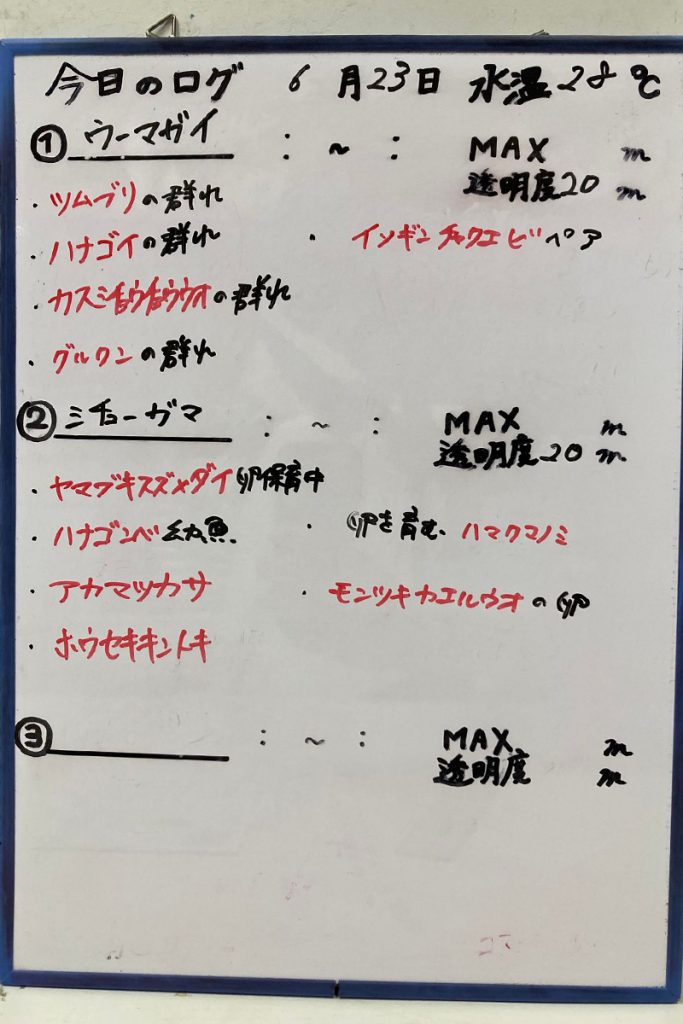 今日のログ 6月23日 水温28℃
① ウーマガイ : ~ : MAX m
透明度20 m
・ツムブリの群れ
・ハナゴイの群れ ・イソギンチャクエビペア
・カスミチョウチョウウオの群れ
・グルクンの群れ
② ミチョーガマ : ~ : MAX m
透明度20 m
・ヤマブキスズメダイ卵保育中
・ハナゴンベ幼魚. ・卵を育む、ハマクマノミ
・アカマツカサ ・モンツキカエルウオの卵
・ホウセキキントキ
③ : ~ : MAX m
透明度 m